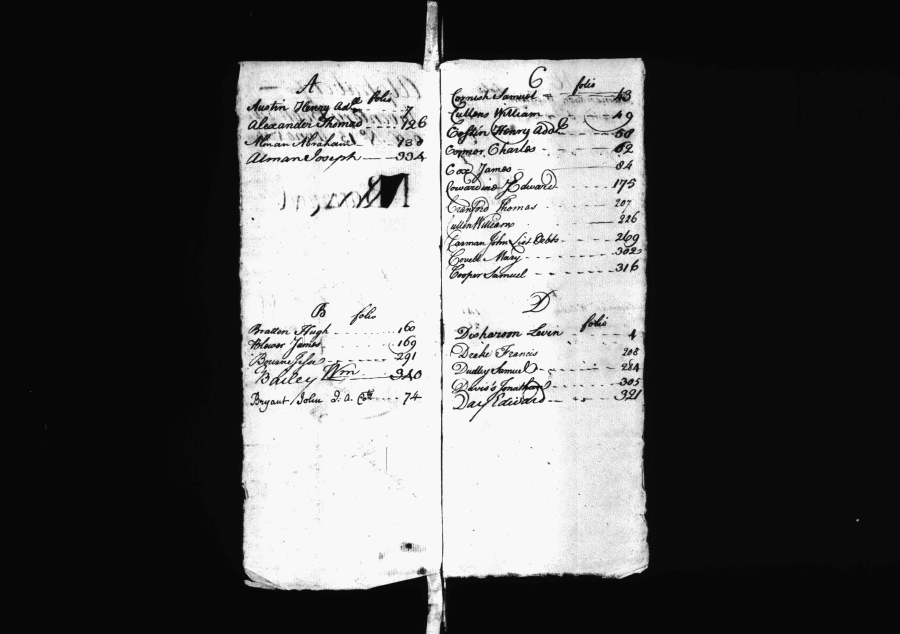 A
Austin Henry Add folio 7
Alexander Thomas 126
Alman Abraham
Alman Joseph 334
B
folio
Bratten Hugh 160
Blewer James 169
Bowane Jesse 291
Bailey Wm 340
Bryant John 74
C
folio
Cornish Samuel 43
Cullens William 49
Henry Add 58
Connor Charles 62
Cox James 84
Cowardine Edward 175
Cranford Thomas 207
Cullin William 226
Carman John List Debts 269
Covell Mary 302
Cooper Samuel 316
D
folio
Disharoon Levin 4
Drake Francis 208
Dudley Samuel 284
Davis's Jonathan 305
Day Edward 321